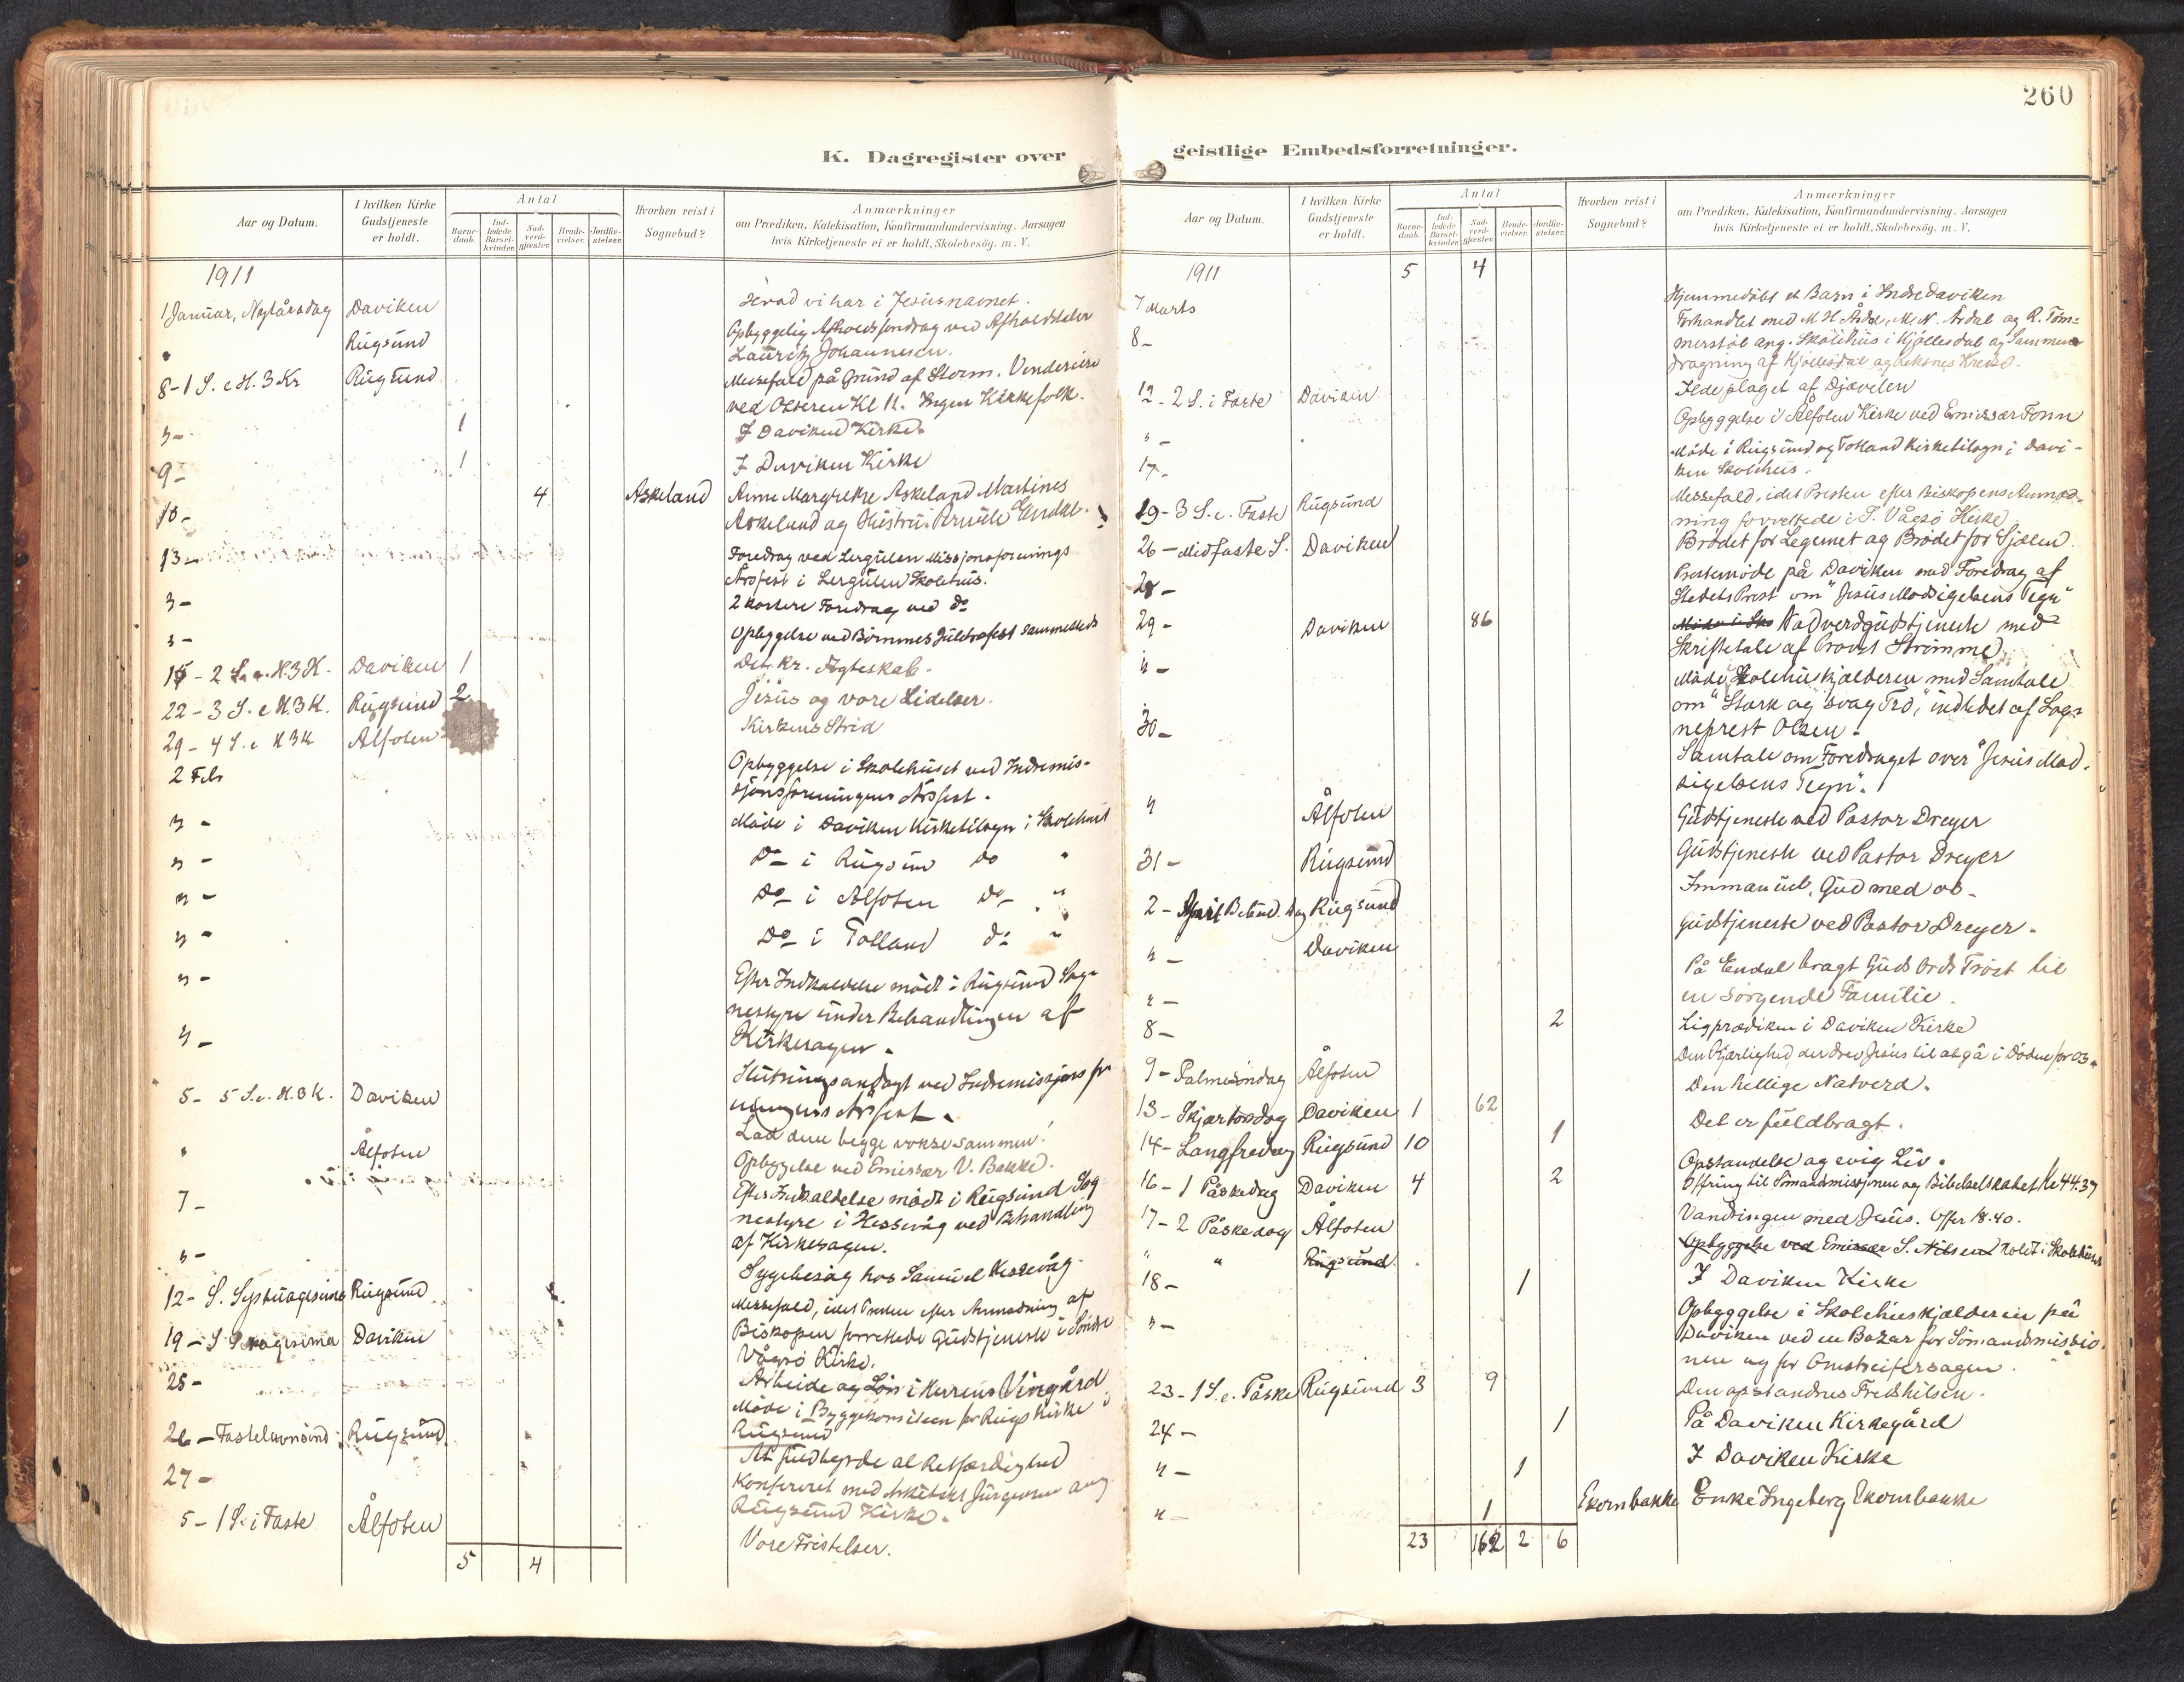 260
K. Dagregister over geistlige Embedsforretninger.
Aar og Datum.
I hvilken Kirke Gudstjeneste er holdt.
Antal
Barnedaab.
Indledede Barselkvinder.
Nadverdgjester.
Brudevielser.
Jordfæstelser.
Hvorhen reist i Sognebud?
Anmærkninger
om Prædiken, Katekisation, Konfirmandundervisning, Aarsagen
hvis Kirketjeneste ei er holdt, Skolebesög. m. V.
1911
1 Januar, Nytårsdag Daviken Hvad vi har i Jesusnavnet.
" Rugsund Opbyggelig Afholdsforedrag ved Afholdstaler
Lauritz Johannesen.
8 - 1 S. e H. 3 Kr Rugsund Messefald på Grund af Storm.
ved Kl 12. Ingen Kirkefolk.
" - 1 I Daviken Kirke.
9 - 1 I Daviken Kirke
10 - 4 Askeland Anne Margrethe Askeland Martines
Askeland og Hustru
13 - Foredrag ved Lergulen Missjonsforenings
Årsfest i Lergulen Skolehus.
" - 2 kortere Foredrag ved do
" - Opbyggelse ved Børnenes Juletrefest sammesteds
15 - 2 S. e. H. 3 K. Daviken 1 Det kr. Ægteskab.
22 - 3 S. e H. 3 K. Rugsund 2 Jesus og vore Lidelser.
29 - 4 S. e H 3 K Ålfoten Kirkens Strid
2 Feb Opbyggelse i Skolehuset ved Indremis-
sjonsforeningens Årsfest.
" - Møde i Daviken Kirketilsyn i Skolehuset
" - Do i Rugsund do "
" - Do i Ålfoten do "
" - Do i Totland do "
" - Efter Indkaldelse mødt i Rugsund Sog-
nestyre under Behandlingen af
Kirkesagen.
" - Slutningsandagt ved Indremissjonsfor
eningens Årsfest.
5 - 5 S. e. H. 3 K. Daviken Lad dem begge vokse sammen!
" Ålfoten Opbyggelse ved Emissær V. Bakke.
7 - Efter Indkaldelse mødt i Rugsund Sog
nestyre i Hessevåg ved Behandling
af Kirkesagen.
" - Sygebesøg hos Samuel Hessevåg.
12 - S. Septuagesima Rugsund Messefald, idet Presten efter Anmodning af
Biskopen forrettede Gudstjeneste i Søndre
Vågsø Kirke.
19 - S Sexagesima Daviken Arbeide og Løn i Herrens Vingård
25 - Møde i Byggekomiteen for Rugs Kirke i
Rugsund
26 - Fastelavnssønd. Rugsund At fuldbyrde al Retfærdighed
27 - Konfereret med Arkitekt Jürgensen ang
Rugsund Kirke.
5 - 1 S. i Faste Ålfoten Vore Fristelser.
5 4
1911 5 4
7 Marts Hjemmedøbt et Barn i Indre Daviken
8 - Forhandlet med M H Årdal, M. N. Årdal og R. Tøm-
merstøl ang. Skolehus i Hjøllesdal og Sammen
dragning af Hjøllesdal og Kreds.
12 - 2 S. i Faste Daviken Ilde plaget af Djævelen
" - Opbyggelse i Ålfoten Kirke ved Emissær Fonn
17 - Møde i Rugsund og Totland Kirketilsyn i Davi-
ken Skolehus.
19 - 3 S. i. Faste Rugsund Messefald, idet Presten efter Biskopens Anmod-
ning forrettede i S. Vågsø Kirke
26 - Midfaste S. Daviken Brødet for Legemet og Brødet for Sjælen.
28 - Prestemøde på Daviken med Foredrag af
Stedets Prest om "Jesus Modsigelsens Tegn"
29 - Daviken 86 Nadverdgudstjeneste med
Skriftetale af Provst Strømme
" - Møde i Skolehuskjælderen med Samtale
om "Stærk og svag Tro," indledet af Sog-
neprest Olsen.
30 - Samtale om Foredraget over "Jesus Mod-
sigelsens Tegn".
" Ålfoten Gudstjeneste ved Pastor Dreyer
31 - Rugsund Gudstjeneste ved Pastor Dreyer
2 - April Rugsund Immanuel, Gud med os -
" - Daviken Gudstjeneste ved Pastor Dreyer.
" - På Endal bragt Guds Ords Trøst til
en sørgende Familie.
8 - 2 Ligprædiken i Daviken Kirke
9 - Palmesøndag Ålfoten Den Kjærlighed der drev Jesus til at gå i Døden for os.
13 - Skjærtorsdag Daviken 1 62 Den hellige Natverd.
14 - Langfredag Rugsund 10 1 Det er fuldbragt.
16 - 1 Påskedag Daviken 4 2 Opstandelse og evig Liv.
Offring til Sømandsmissjonen og Bibelselskabet Kr 44.37
17 - 2 Påskedag Ålfoten Vandringen med Jesus. Offer 18.40.
" " Rugsund Opbyggelse ved Emissær S. Nilsen holdt i Skolehuset
18 - 1 I Daviken Kirke
" - Opbyggelse i Skolehuskjælderen på
Daviken ved en Bazar for Sømandsmissio-
nen og for Omstreifersagen.
23 - 1 S. e. Påske Rugsund 3 9 Den opstandnes Fredshilsen.
24 - 1 På Daviken Kirkegård
" - 1 I Daviken Kirke
" - 1 Ekornbakke Enke Ingeborg Ekornbakke
23 162 2 6